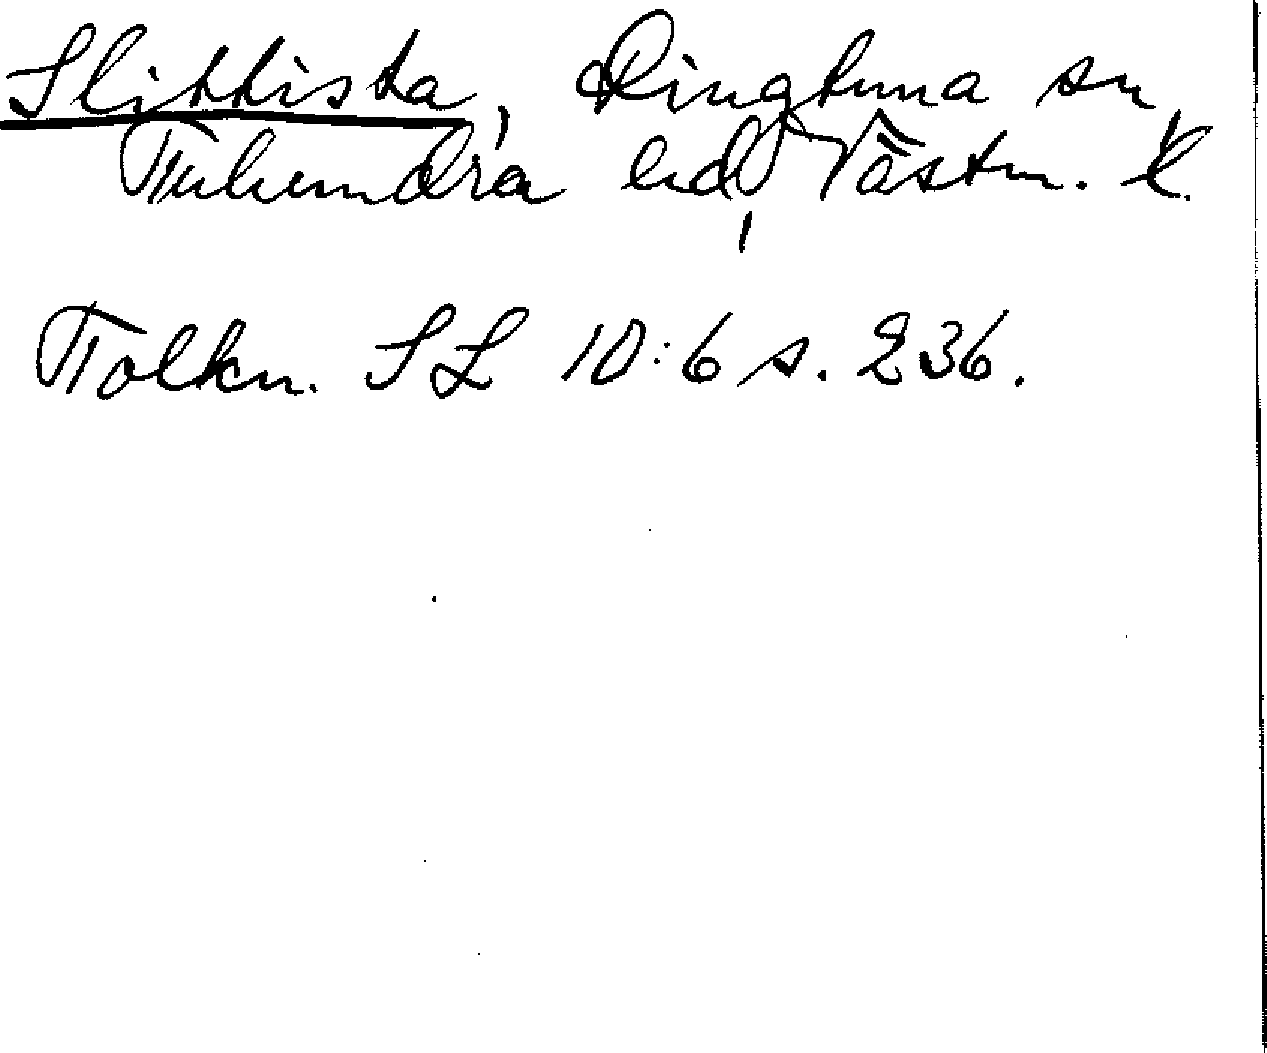 Slittista, Dingtuna sn,
Tuhundra hd, Västm. l.
Tolkn. SL 10:6 s. 236.